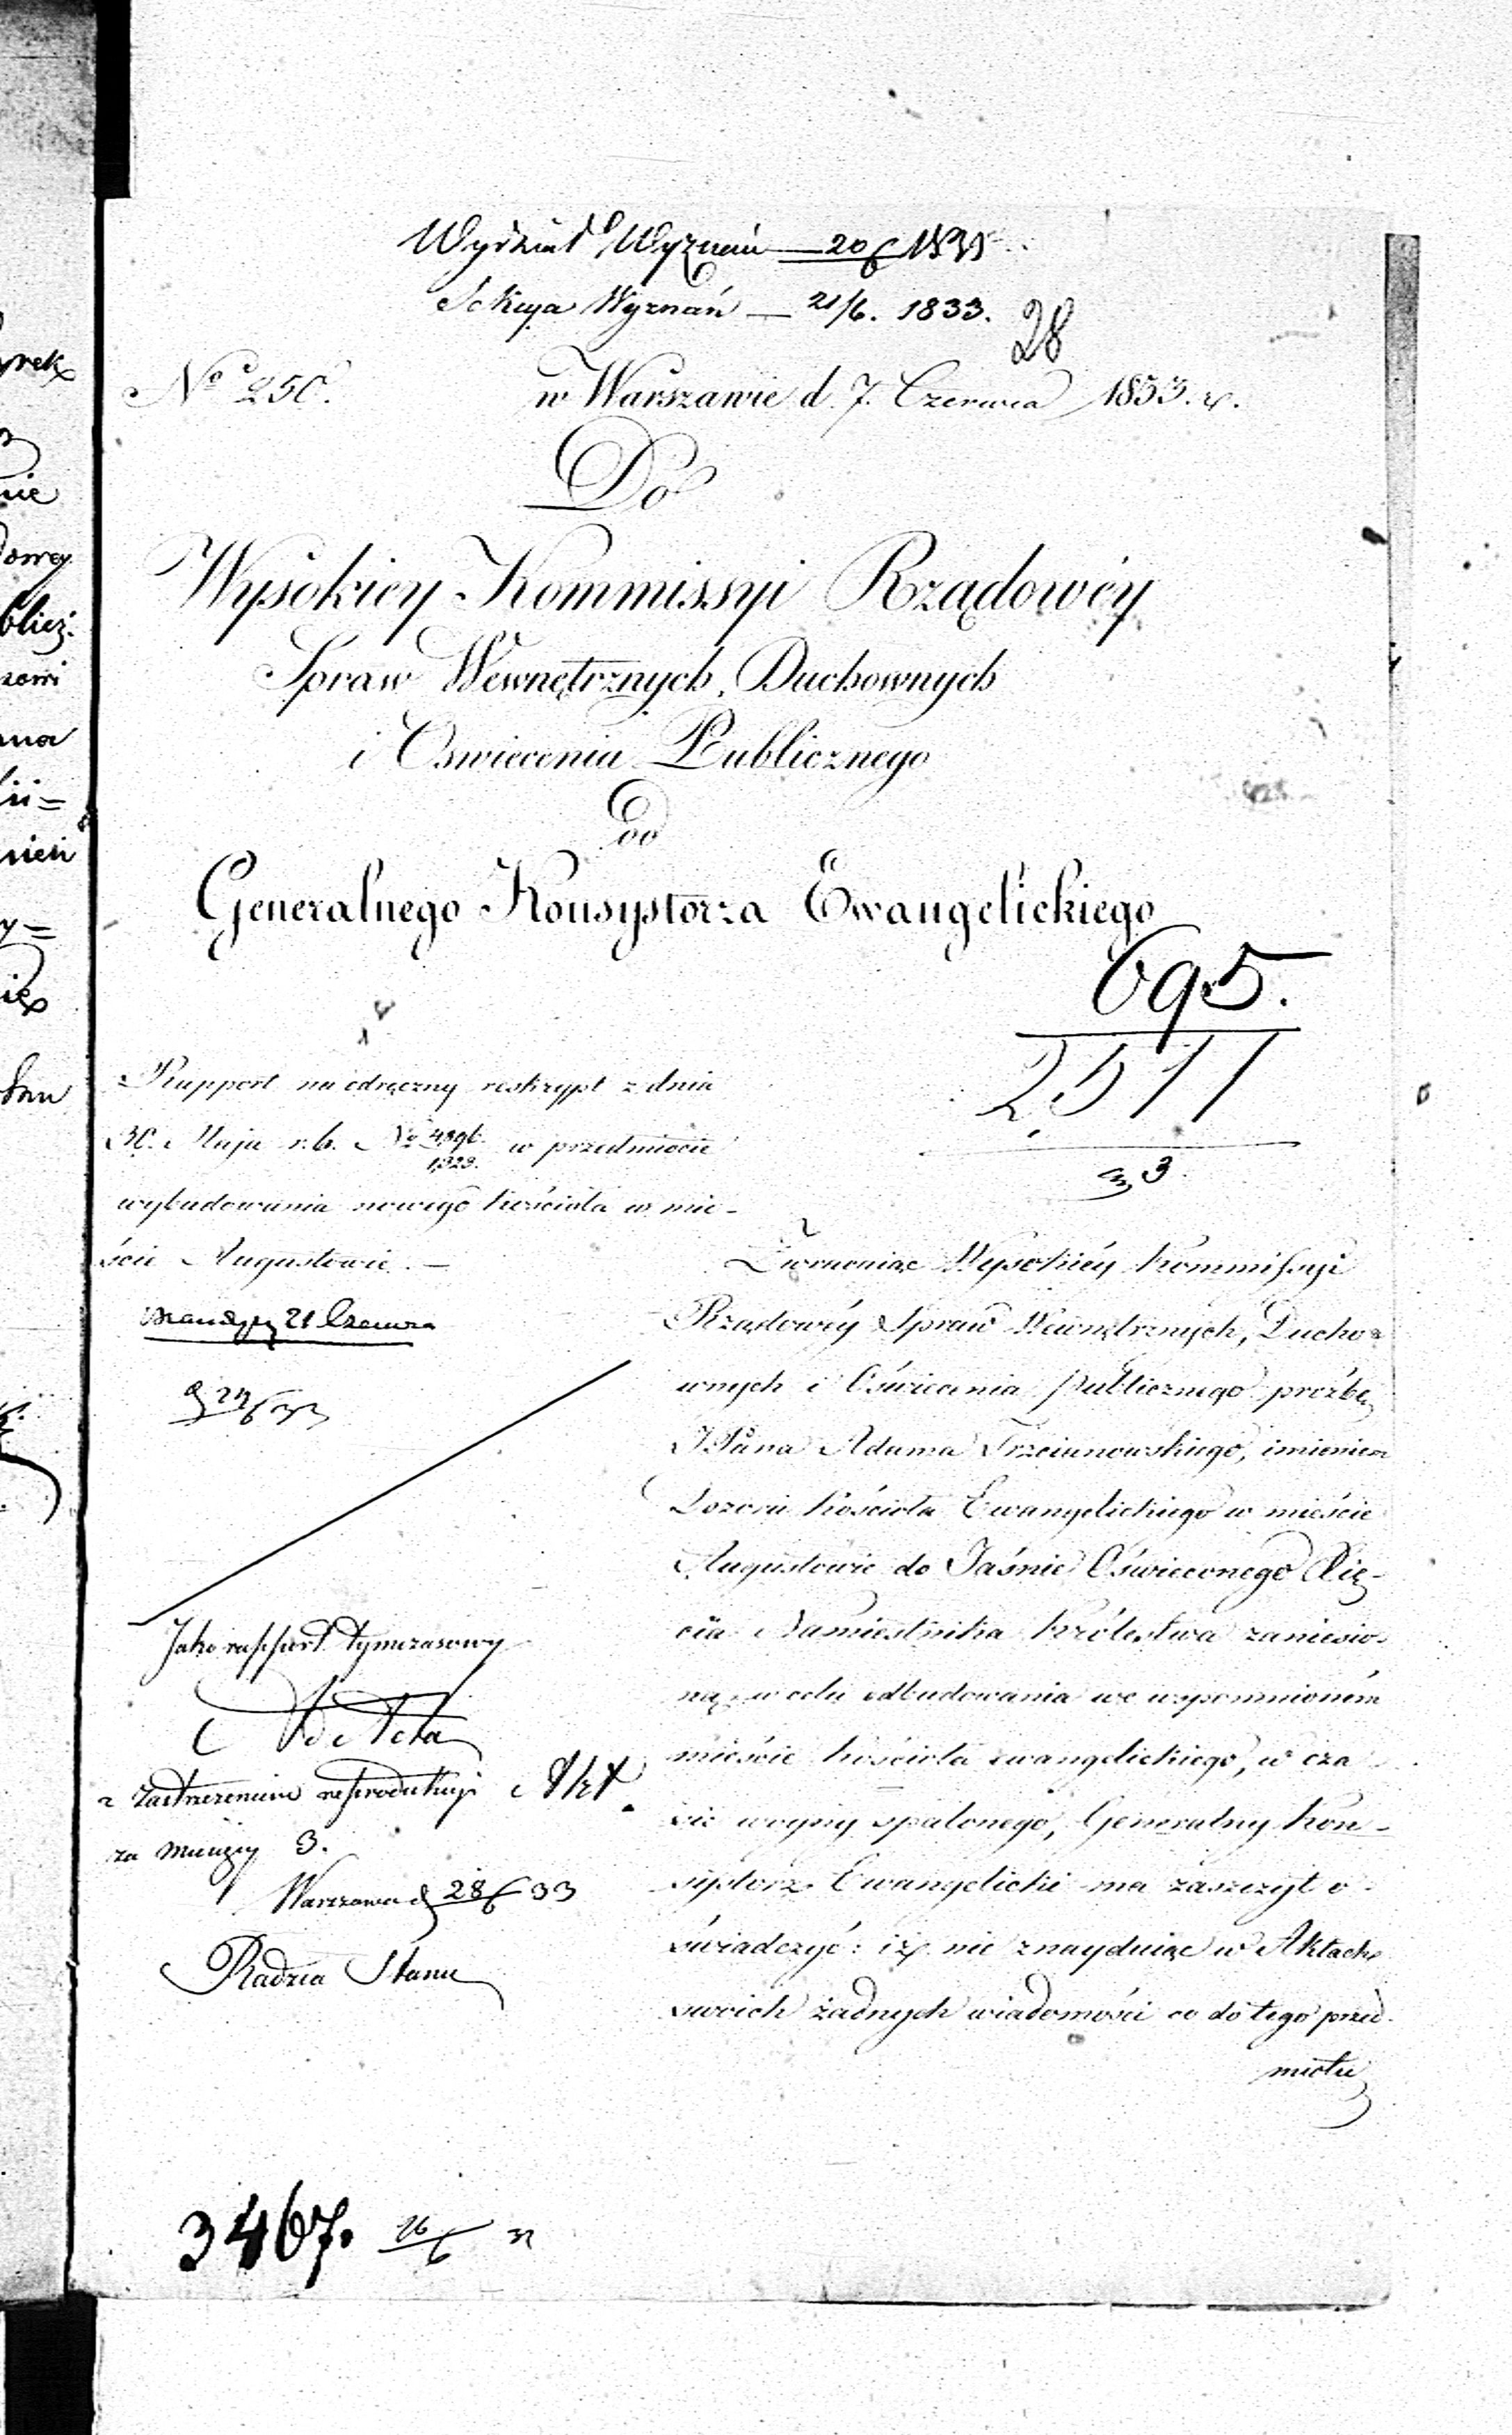 Wydział Wyznań — 20/6 1833
Sekcya Wyznań — 21/6. 1833.
28
No 250.
w Warszawie d. 7. Czerwca 1833. r.
Do
Wysokiey Kommissyi Rządowéy
Spraw Wewnętrznych, Duchownych
i Oswiecenia Publicznego
od
Generalnego Konsystorza Ewangelickiego
695.
2511
33.
Rapport na odręczny reskrypt z dnia
30. Maja r. b. No 4896/1323. w przedmiocie
wybudowania nowego kościoła w mie-
ście Augustowie. —
21 Czerwca
Jako rapport tymczasowy
Ad Acta
z zastrzeżeniem reprodukcyi
za Miesięcy 3.
Warszawa d 28/6 33
Radzca Stanu
Zwracaiąc Wysokiéy Kommissyi
Rządowéy Spraw Wewnętrznych, Ducho-
wnych i Oświecenia Publicznego proźbę
JPana Adama Trzcianowskiego, imieniem
Dozoru kościoła Ewangelickiego w mieście
Augustowie do Jaśnie Oświeconego Xię-
cia Namiestnika Królestwa zaniesio-
ną, w celu odbudowania we wspomnioném
mieście kościoła ewangelickiego, w cza-
sie woyny spalonego, Generalny Kon-
systorz Ewangelicki ma zaszczyt o-
świadczyć: iż nie znayduiąc w Aktach
swoich żadnych wiadomości co do tego przed-
miotu
3467. 16/6